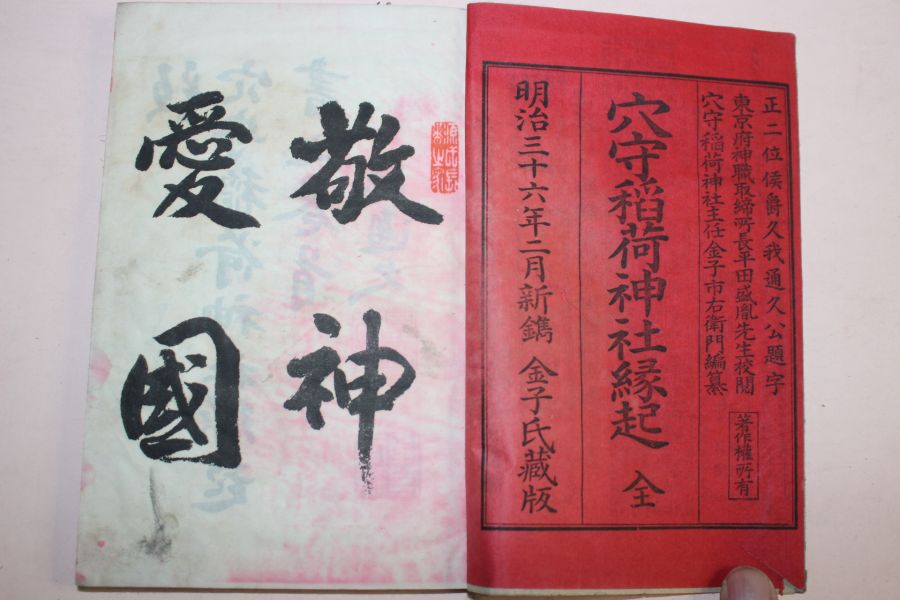 正二位侯爵久我通久公題字
東京府神職取締所長平田盛胤先生校閲
穴守稲荷神社主任金子市右衛門編纂
著作權所有
穴守稲荷神社縁起 全
明治三十六年二月新鐫 金子氏藏版
敬神
愛國